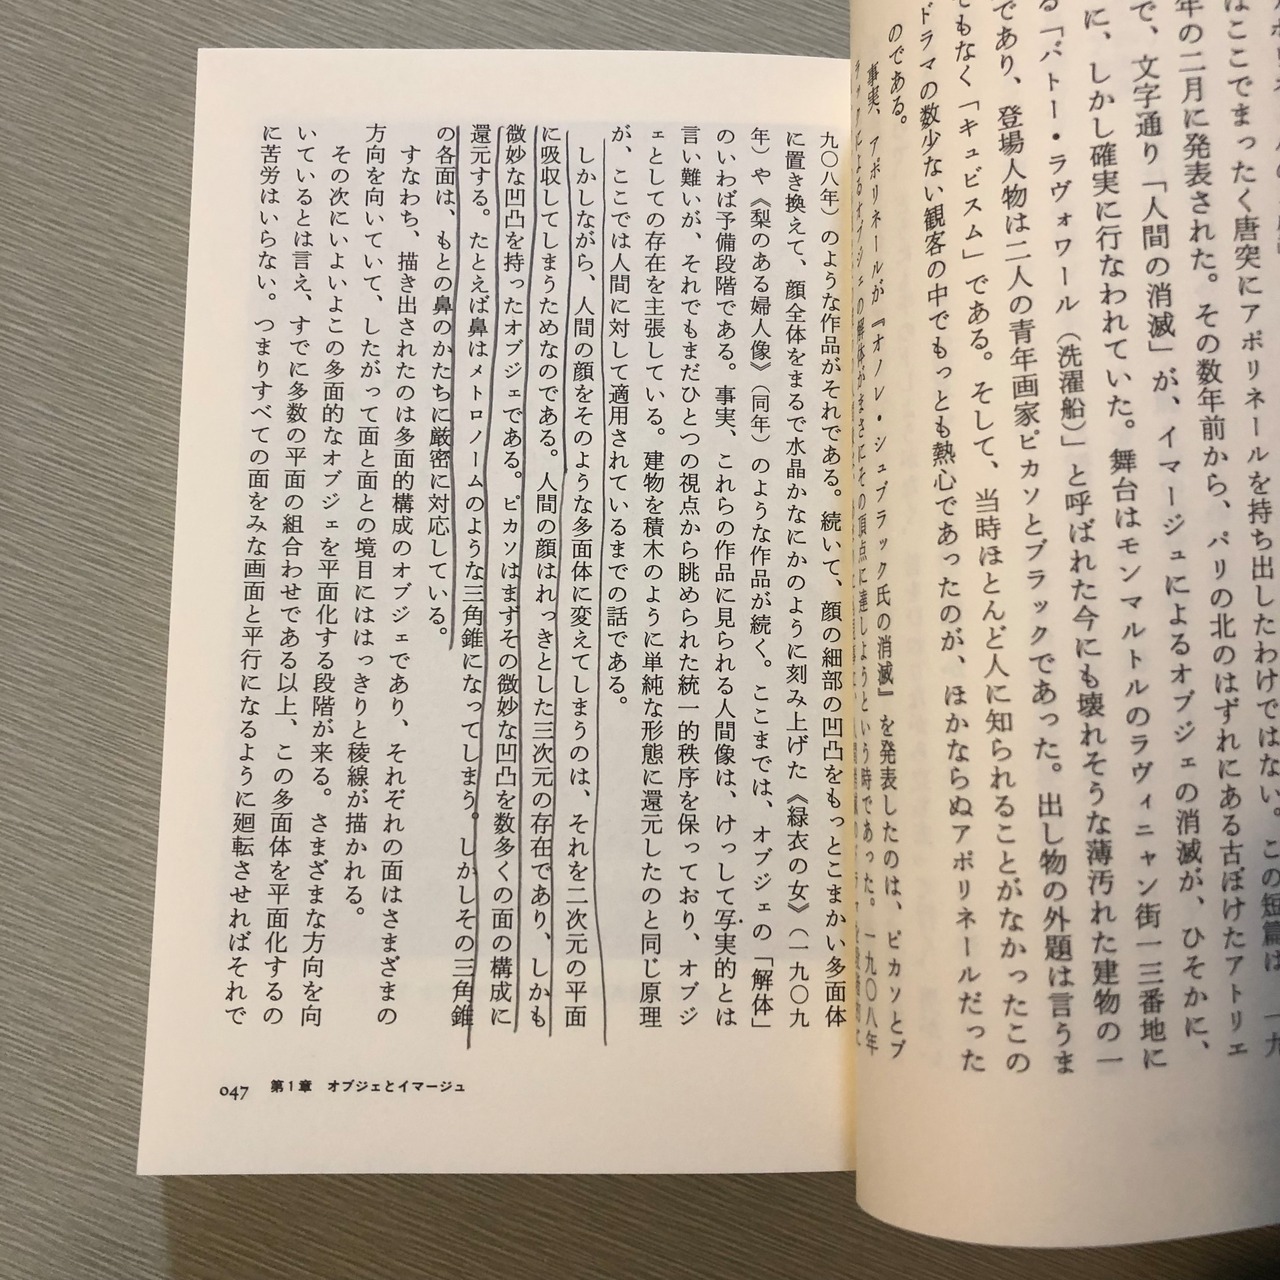 はここでまったく唐突にアポリネールを持ち出したわけではない。この短篇は、一九
年の二月に発表された。その数年前から、パリの北のはずれにある古ぼけたアトリエ
で、文字通り「人間の消滅」が、イマージュによるオブジェの消滅が、ひそかに、
に、しかし確実に行なわれていた。舞台はモンマルトルのラヴィニャン街一三番地に
る「バトー・ラヴォワール（洗濯船）」と呼ばれた今にも壊れそうな薄汚れた建物の一
であり、登場人物は二人の青年画家ピカソとブラックであった。出し物の外題は言うま
でもなく「キュビスム」である。そして、当時ほとんど人に知られることがなかったこの
ドラマの数少ない観客の中でもっとも熱心であったのが、ほかならぬアポリネールだった
のである。
事実、アポリネールが『オノレ・シュブラック氏の消滅』を発表したのは、ピカソとブ
ラックによるオブジェの解体がまさにその頂点に達しようという時であった。一九〇八年
九〇八年）のような作品がそれである。続いて、顔の細部の凹凸をもっとこまかい多面体
に置き換えて、顔全体をまるで水晶かなにかのように刻み上げた《緑衣の女》（一九〇九
年）や《梨のある婦人像》（同年）のような作品が続く。ここまでは、オブジェの「解体」
のいわば予備段階である。事実、これらの作品に見られる人間像は、けっして写実的とは
言い難いが、それでもまだひとつの視点から眺められた統一的秩序を保っており、オブジ
ェとしての存在を主張している。建物を積木のように単純な形態に還元したのと同じ原理
が、ここでは人間に対して適用されているまでの話である。
しかしながら、人間の顔をそのような多面体に変えてしまうのは、それを二次元の平面
に吸収してしまうためなのである。人間の顔はれっきとした三次元の存在であり、しかも
微妙な凹凸を持ったオブジェである。ピカソはまずその微妙な凹凸を数多くの面の構成に
還元する。たとえば鼻はメトロノームのような三角錐になってしまう。しかしその三角錐
の各面は、もとの鼻のかたちに厳密に対応している。
すなわち、描き出されたのは多面的構成のオブジェであり、それぞれの面はさまざまの
方向を向いていて、したがって面と面との境目にははっきりと稜線が描かれる。
その次にいよいよこの多面的なオブジェを平面化する段階が来る。さまざまな方向を向
いているとは言え、すでに多数の平面の組合わせである以上、この多面体を平面化するの
に苦労はいらない。つまりすべての面をみな画面と平行になるように廻転させればそれで
047 第1章 オブジェとイマージュ